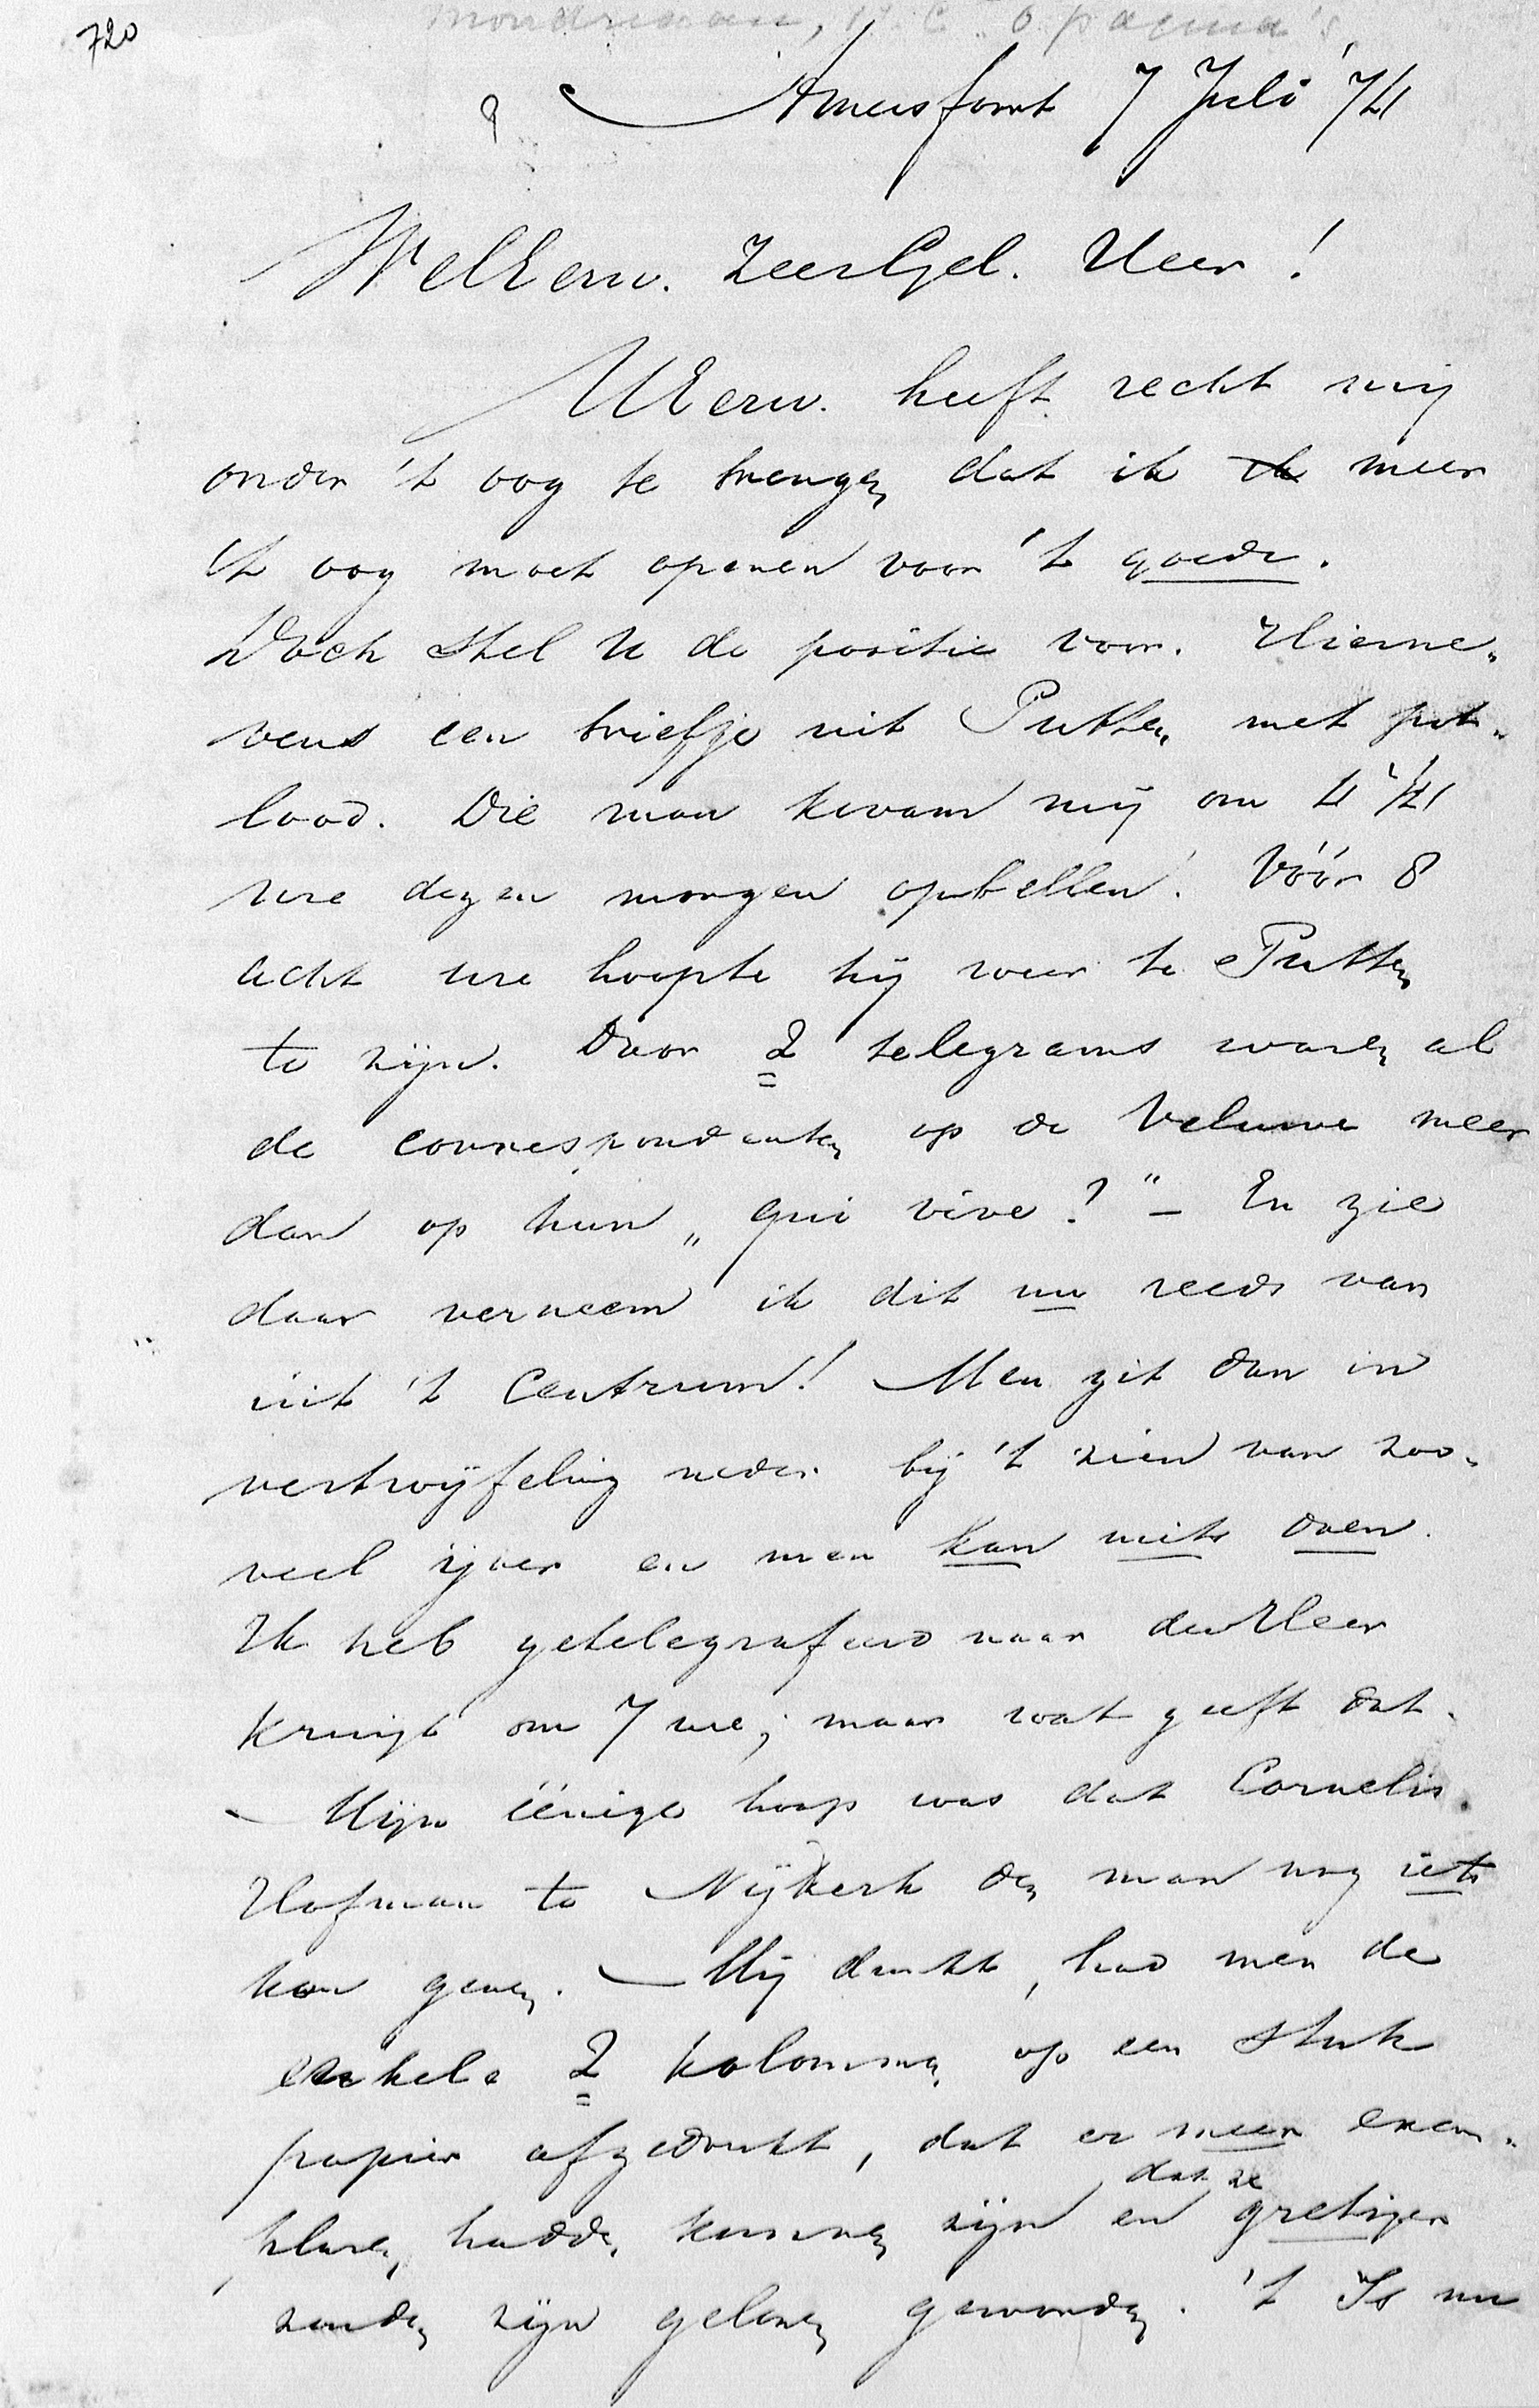 720
Mondriaan, P. C. 6 pagina's
Amersfoort 7 Juli '74
WelEerw. ZeerGel. Heer!
UEerw. heeft recht mij
onder 't oog te brengen dat ik meer
't oog moet openen voor 't goede.
Doch stel U de positie voor. Hierne-
vens een briefje uit Putten met pot-
lood. Die man kwam mij om 4 1/4
ure dezen morgen opbellen! Vóór 8
acht ure hoopte hij weer te Putten
te zijn. Door 2 telegrams waren al
de correspondenten op de Veluwe meer
dan op hun „qui vive?" – En zie
daar verneem ik dit nu reeds van
uit 't Centrum! Men zit dan in
vertwijfeling neder bij 't zien van zoo-
veel ijver en men kan niets doen.
Ik heb getelegrafeerd naar den Heer
Kruijt om 7 ure; maar wat geeft dat.
– Mijn éénige hoop was dat Cornelis
Hofman te Nijkerk den man nog iets
kon geven. – Mij dunkt, had men de
enkele 2 kolommen op een stuk
papier afgedrukt, dat er meer exem-
dat ze
plaren hadden kunnen zijn en gretiger
zouden zijn gelezen geworden. 't Is nu